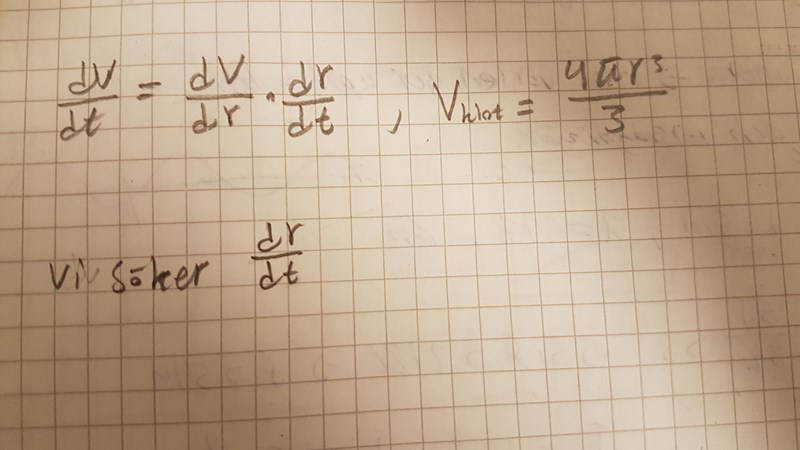 dV/dt = dV/dr · dr/dt , V_klot = 4πr³/3
vi söker dr/dt